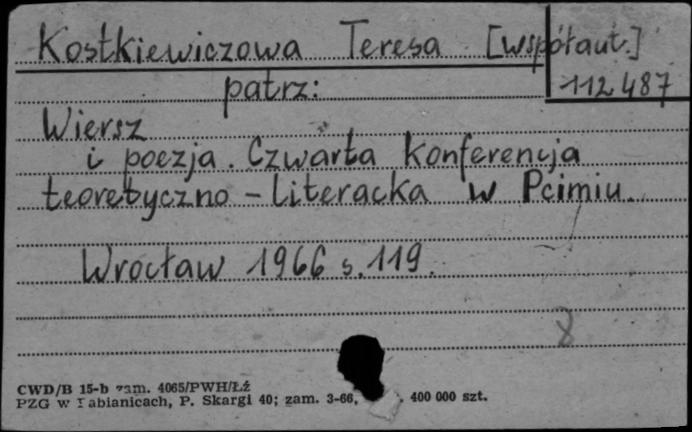 Kostkiewiczowa Teresa [współaut.]
112 487
patrz:
Wiersz
i poezja. Czwarta Konferencja
teoretyczno - literacka w Pcimiu.
Wrocław 1966 s. 119.
8
CWD/B 15-b zam. 4065/PWH/Łź
PZG w Pabianicach, P. Skargi 40; zam. 3-66, 400 000 szt.